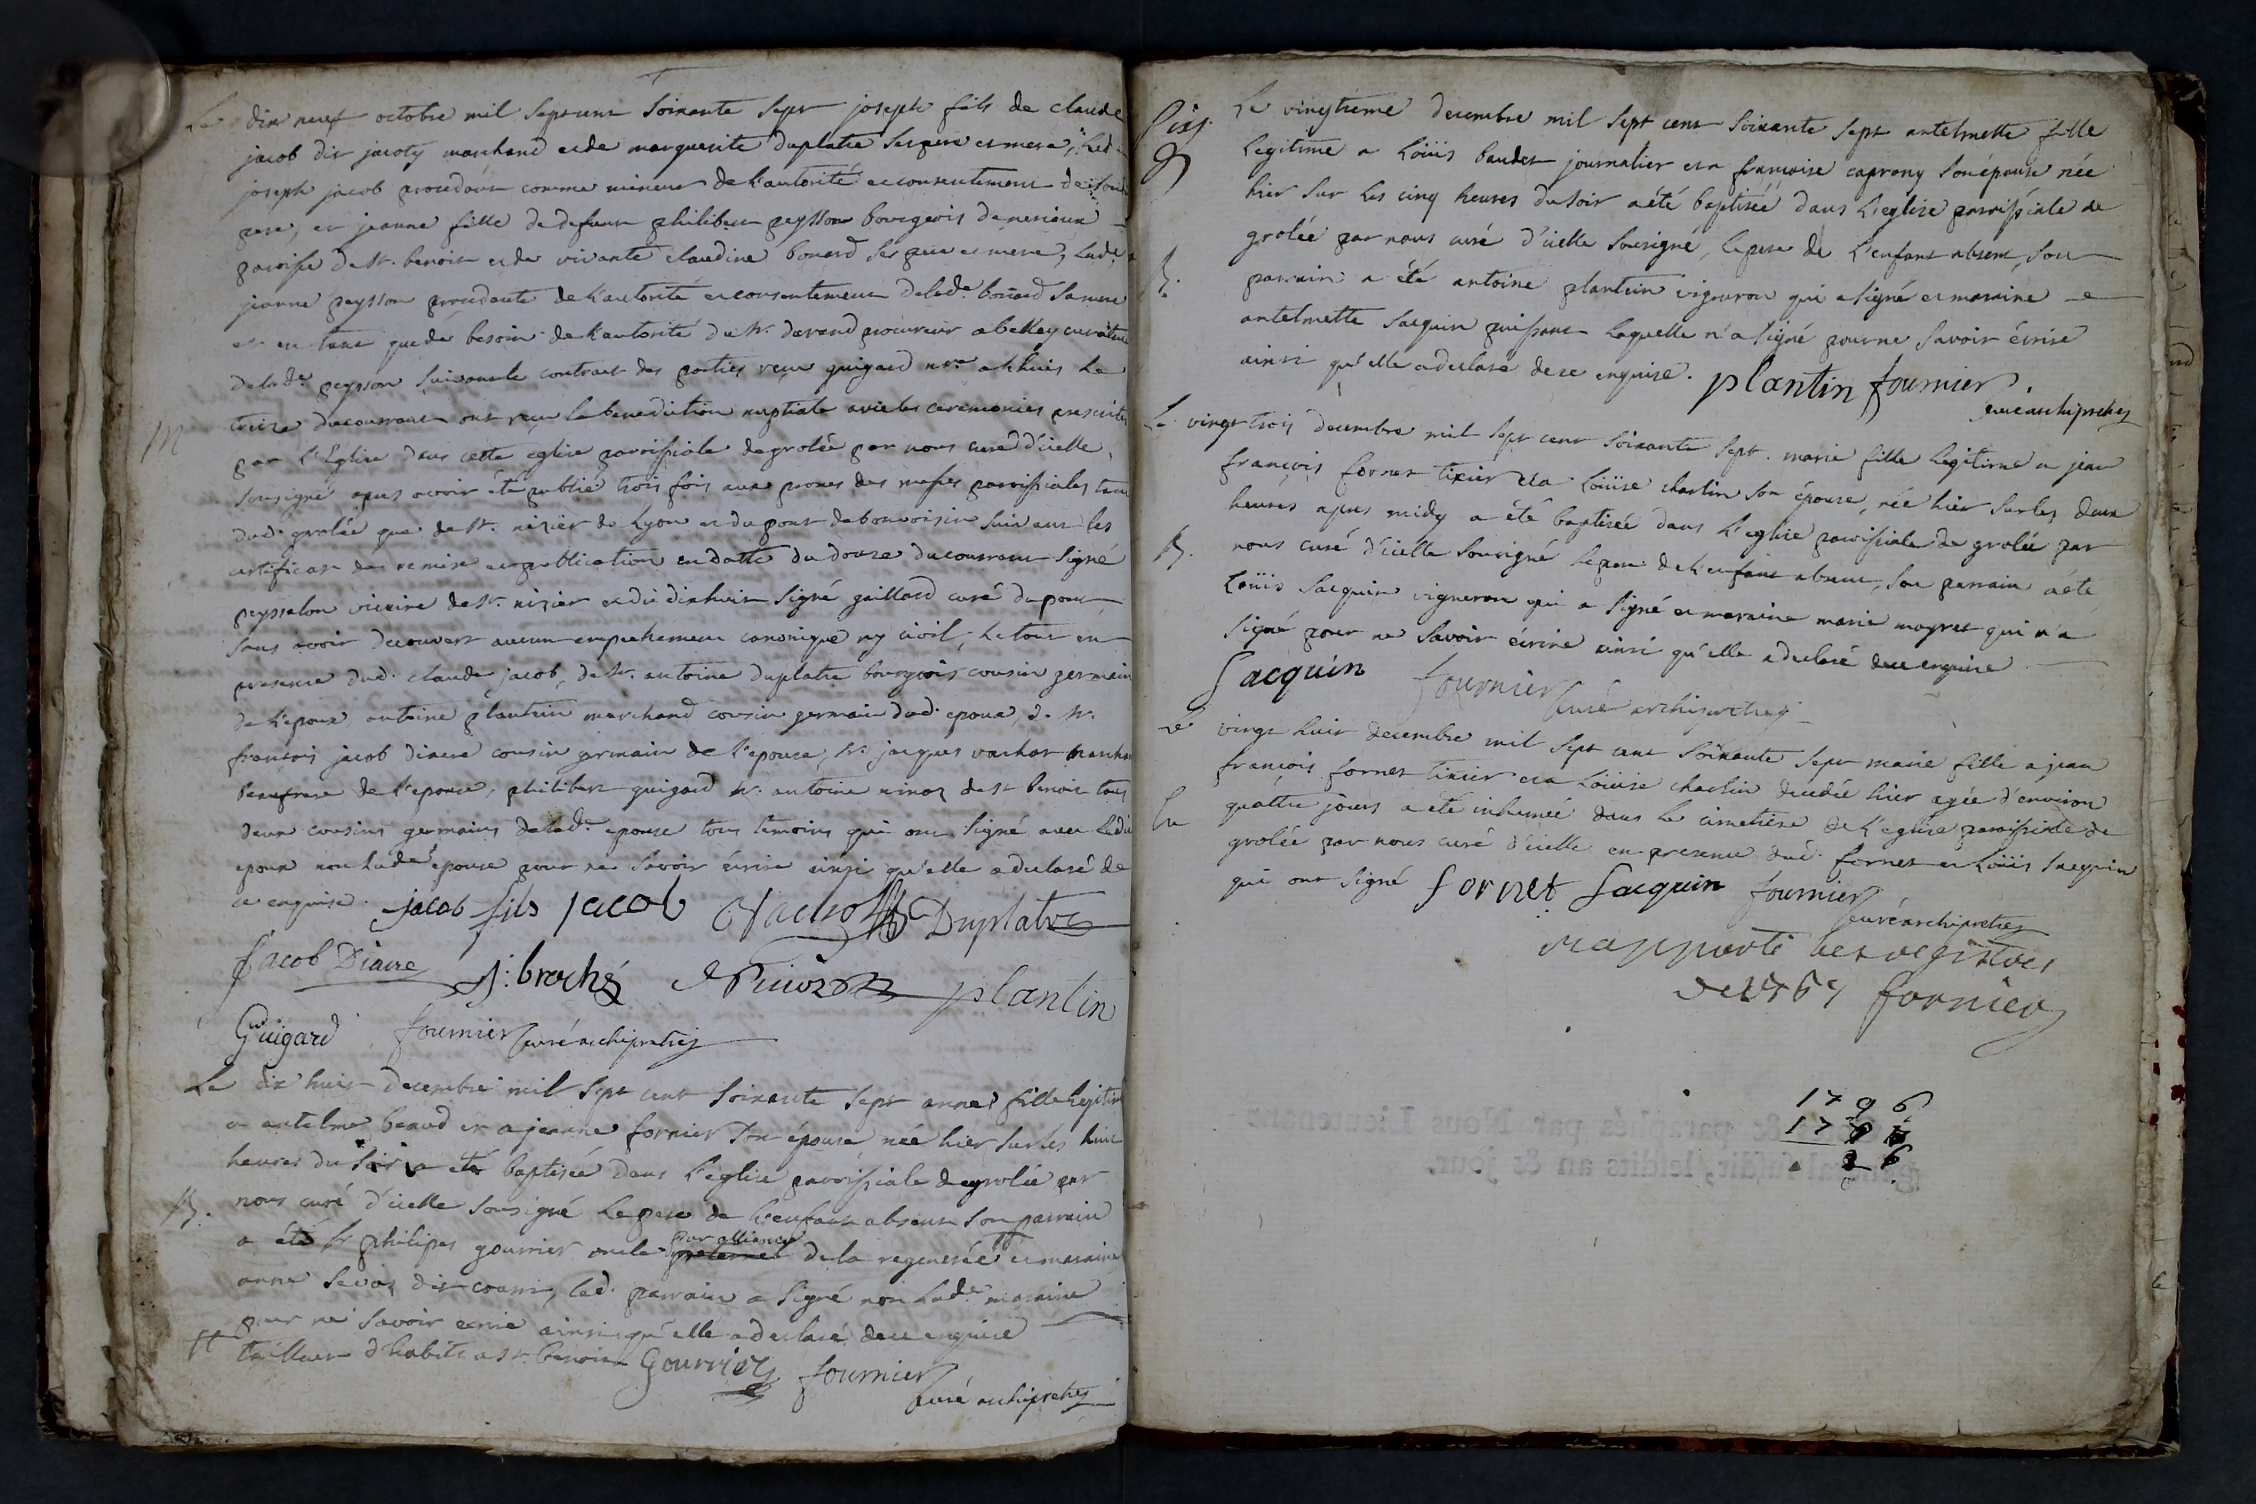 Le dix neuf octobre mil sept cent soixante sept joseph fils de claude
jacob dit jacoty marchand et de marguerite duplatre ses pere et mere, led.
joseph jacob procedant comme mineur de l'autorité et consentement de son
pere, et jeanne fille de defunt philibert peysson bourgeois de
paroisse de st. benoit et de vivante claudine bonard ses pere et mere, lade.
jeanne peysson procedante de l'autorité et consentement de lade. bonard sa mere
et en tant que de besoin de l'autorité de sr. davend procureur a belley curateur
de lade. peysson suivant le contrat des parties reçu guigard nre. a lhuis le
treize du courrant ont reçu la benediction nuptiale avec les ceremonies prescrites
M
par l'Eglise dans cette eglise paroissiale de grolée par nous curé d'icelle
sousigné apres avoir été publié trois fois aux prones des messes paroissiales tant
dud. grolée que de st. nizier de Lyon et du pont de bonvoisin suivant les
certificats de remise et publication en datte du douze du courrant signé
peyssalon vicaire de st. nizier et du dixhuit signé gaillard curé du pont
sans avoir decouvert aucun empechement canonique ny civil, le tout en
presence dud. claude jacob, de sr. antoine duplatre bourgeois cousin germain
de l'epoux antoine plantin marchand cousin germain dud. epoux, de sr.
françois jacob diacre cousin germain de l'epouse, sr. jacques vachot marchand
beaufrere de l'epouse, philibert guigard sr. antoine de st benoit tous
deux cousins germains de lade. epouse tous temoins qui ont signé avec ledit
epoux non lade. epouse pour ne savoir écrire ainsi qu'elle a declaré de
ce enquise. jacob fils jacob Vachot Duplatre
Jacob Diacre j: broche plantin
Guigard fournier curé archipretre
Le dix huit decembre mil sept cent soixante sept anne fille legitime
a antelme beaud et a jeanne fornier son épouse née hier sur les huit
heures du soir a eté baptisée dans l'eglise paroissiale de grolée par
B.
nous curé d'icelle sousigné le pere de l'enfant absent son parrain
par alliance
a été sr philipes gourrier oncle paternel de la regenerée et maraine
anne sevoz dit courri, led. parrain a signé non lade. maraine
pour ne savoir ecrire ainsi qu'elle a declaré de ce enquise
tt tailleur d'habits a st. benoit Gourrier fournier
curé archipretre
Le vingtieme decembre mil sept cent soixante sept antelmette fille
legitime a Loüis baudet journalier et a françoise caprony son épouse née
hier sur les cinq heures du soir a été baptisée dans l'eglise paroissiale de
grolée par nous curé d'icelle sousigné, le pere de l'enfant absent, son
B.
parrain a été antoine plantin vigneron qui a signé et maraine
antelmette sacquin laquelle n'a signé pour ne savoir écrire
ainsi qu'elle a declaré de ce enquise. plantin fournier
curé archipretre
Le vingt trois decembre mil sept cent soixante sept. marie fille legitime a jean
françois fornet tixier et a Loüise charlin son épouse, née hier sur les deux
heures apres midy a été baptisée dans l'eglise paroissiale de grolée par
B.
nous curé d'icelle sousigné le pere de l'enfant absent, son parrain a été
Loüis sacquin vigneron qui a signé et maraine marie moyret qui n'a
signé pour ne savoir écrire ainsi qu'elle a declaré de ce enquise
Sacquin fournier curé archipretre
Le vingt huit decembre mil sept cent soixante sept marie fille a jean
françois fornet tixier et a Loüise charlin decedée hier agée d'environ
quattre jours a été inhumée dans le cimetiere de l'eglise paroissiale de
grolée par nous curé d'icelle en presence dud. fornet et Loüis sacquin
qui ont signé fornet Sacquin fournier
curé archipretre
rapporté les registres
de 1767 fornier
1796